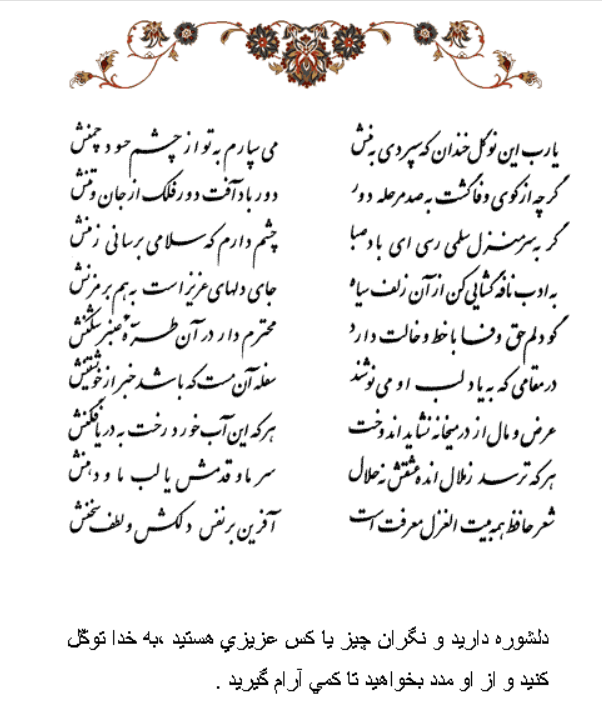 یارب این نوگل خندان که سپردی به منش می سپارم به تو از چشم حسود چمنش
گرچه از کوی وفا گشت به صد مرحله دور دور باد آفت دور فلک از جان و تنش
گر به سر منزل سلمی رسی ای باد صبا چشم دارم که سلامی برسانی ز منش
به ادب نافه گشایی کن از آن زلف سیاه جای دلهای عزیز است به هم بر مزنش
گو دلم حق وفا با خط و خالت دارد محترم دار در آن طره عنبر شکنش
در مقامی که به یاد لب او می نوشند سفله آن مست که باشد خبر از خویشتنش
عرض و مال از در میخانه نشاید اندوخت هرکه این آب خورد رخت به دریا فکنش
هرکه ترسد ز ملال انده عشقش نه حلال سر ما و قدمش یا لب ما و دهنش
شعر حافظ همه بیت الغزل معرفت است آفرین بر نفس دلکش و لطف سخنش
دلشوره داريد و نگران چيز يا کس عزيزي هستيد ،به خدا توکّل
کنيد و از او مدد بخواهيد تا کمي آرام گيريد .